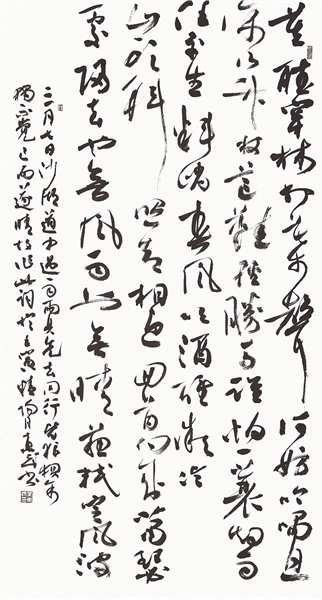 莫聽穿林打葉聲何妨吟嘯且
徐行竹杖芒鞋輕勝馬誰怕一蓑煙雨
任平生料峭春風吹酒醒微冷
山頭斜照却相迎回首向來蕭瑟
處歸去也無風雨也無晴蘇軾定風波
三月七日沙湖道中遇雨雨具先去同行皆狼狽余
獨不覺已而遂晴故作此詞